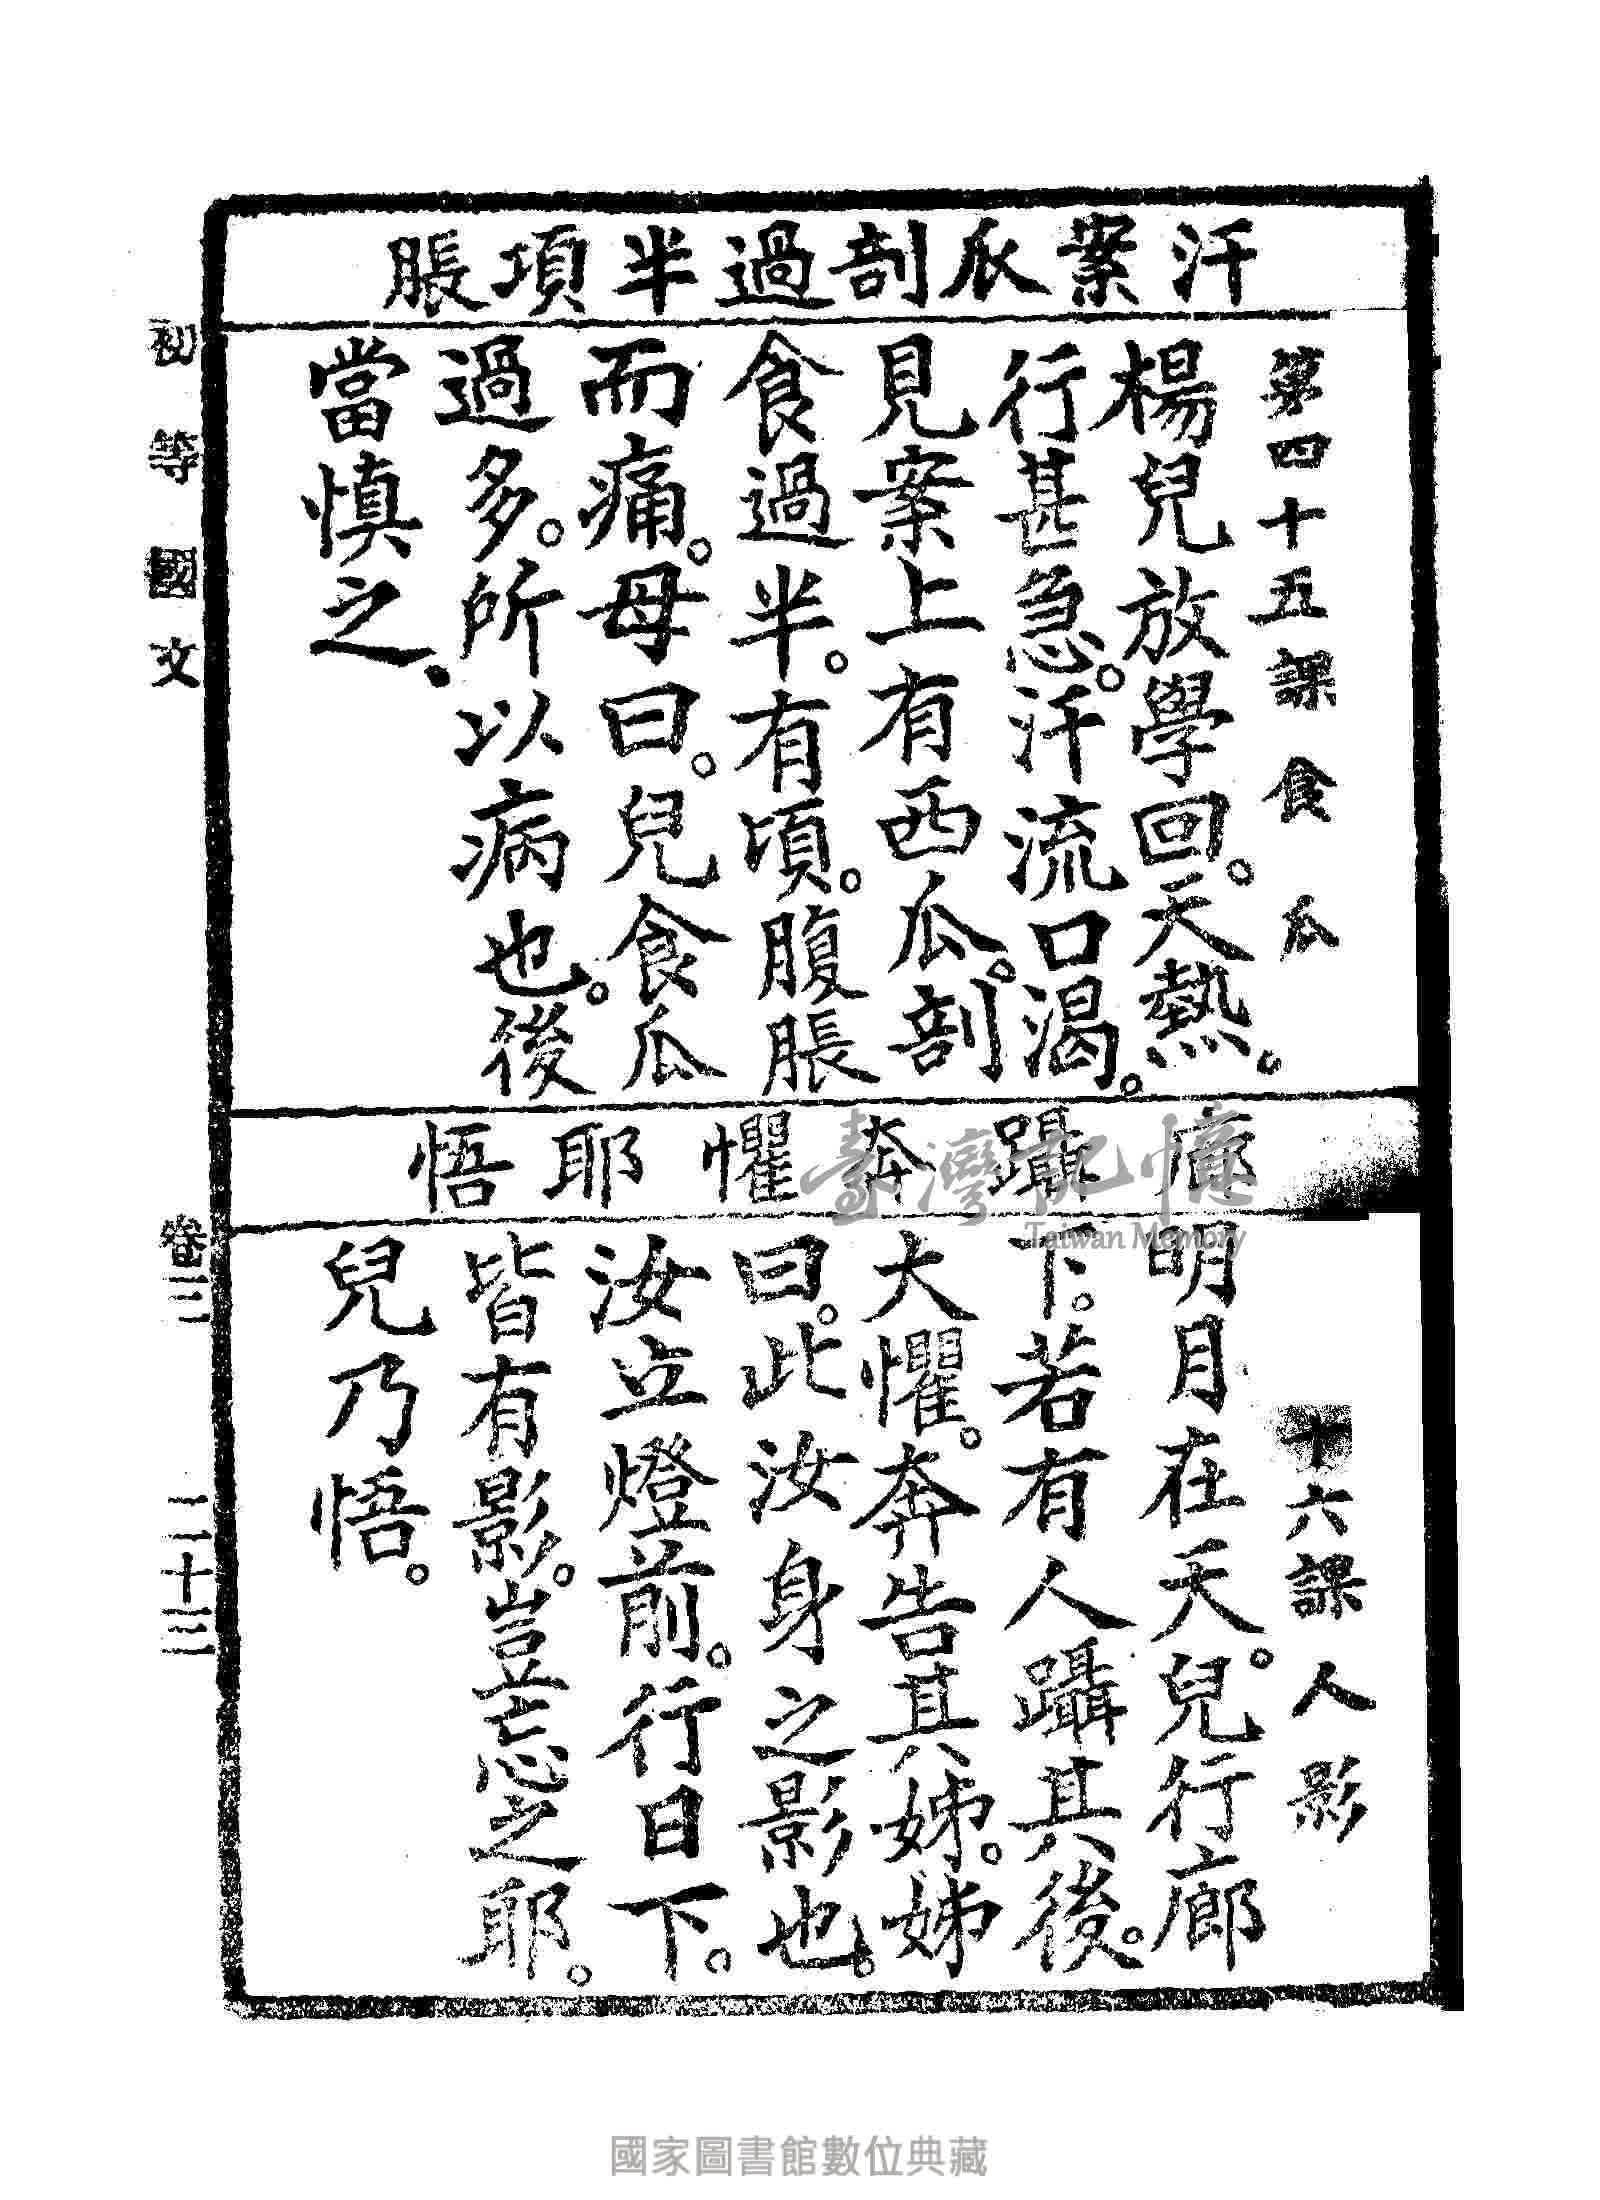 汗案瓜剖過半項脹
第四十五課 食瓜
楊兒放學回。天熱。
行甚急。汗流口渴。
見案上有西瓜。剖
食過半。有頃。腹脹
而痛。母曰。兒食瓜
過多。所以病也。後
當慎之、
躡奔懼耶悟
十六課 人影
明月在天。兒行廊
下。若有人躡其後。
大懼。奔告其姊。姊
曰。此汝身之影也。
汝立燈前。行日下。
皆有影。豈忘之耶。
兒乃悟。
初等國文 卷三 二十三
臺灣記憶
Taiwan Memory
國家圖書館數位典藏